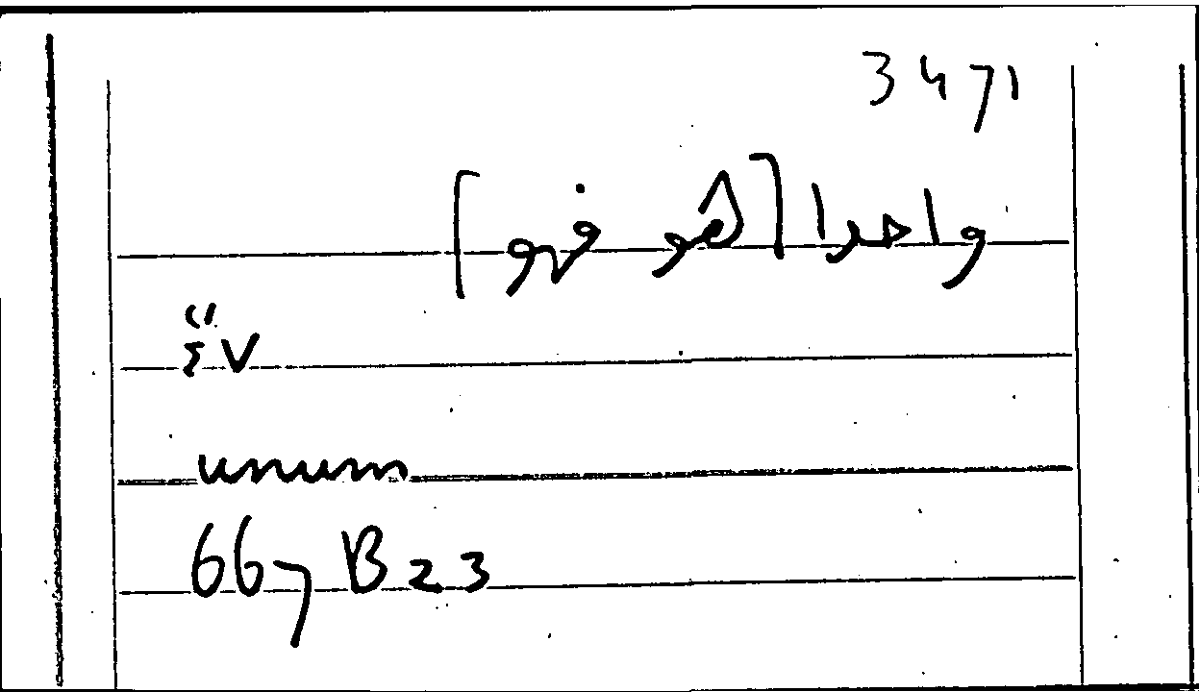 3471
واحدا [هو فرو]
ἕν
unum
667 B 23